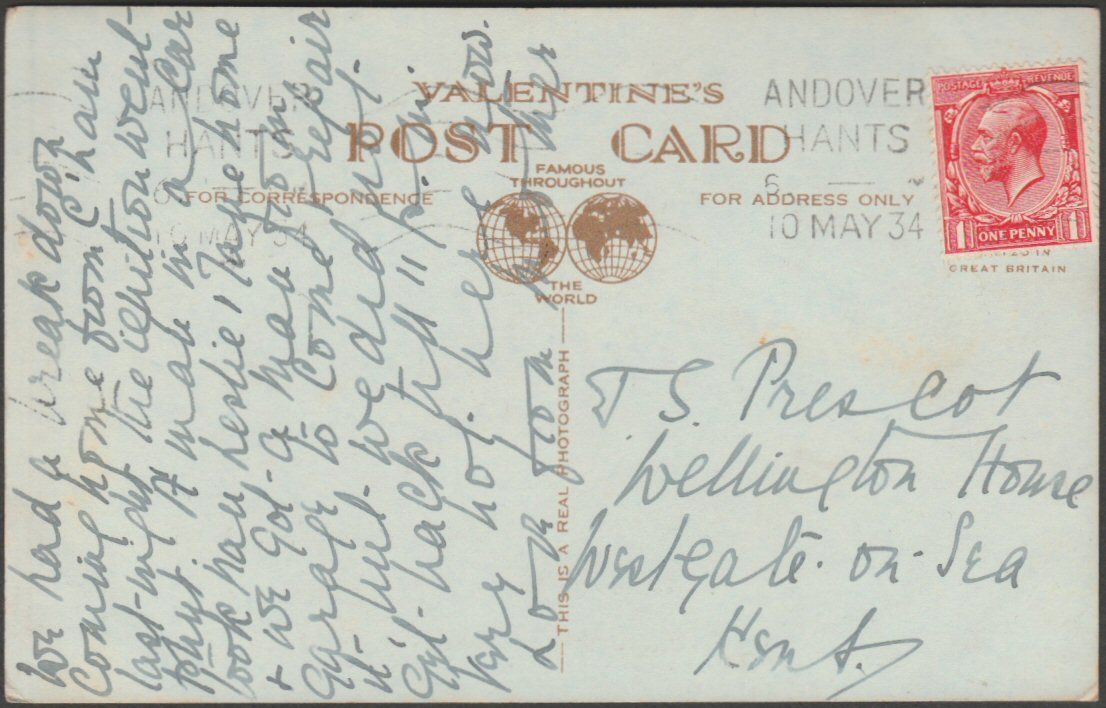 VALENTINE'S
POST CARD
FAMOUS
THROUGHOUT
THE
WORLD
FOR CORRESPONDENCE
FOR ADDRESS ONLY
THIS IS A REAL PHOTOGRAPH
ANDOVER
HANTS
10 MAY 34
ANDOVER
HANTS
6
10 MAY 34
POSTAGE REVENUE
1 ONE PENNY 1
GREAT BRITAIN
We had a break down
coming home from C'ham
last night the ignition went
phut. A man in a car
took han Leslie & Taff home
& we got a man from
garage to come & repair
it but we did not
get back till 11 p.m.
Very hot here now.
Love from Mother
J S Prescot
Wellington House
Westgate-on-Sea
Kent.